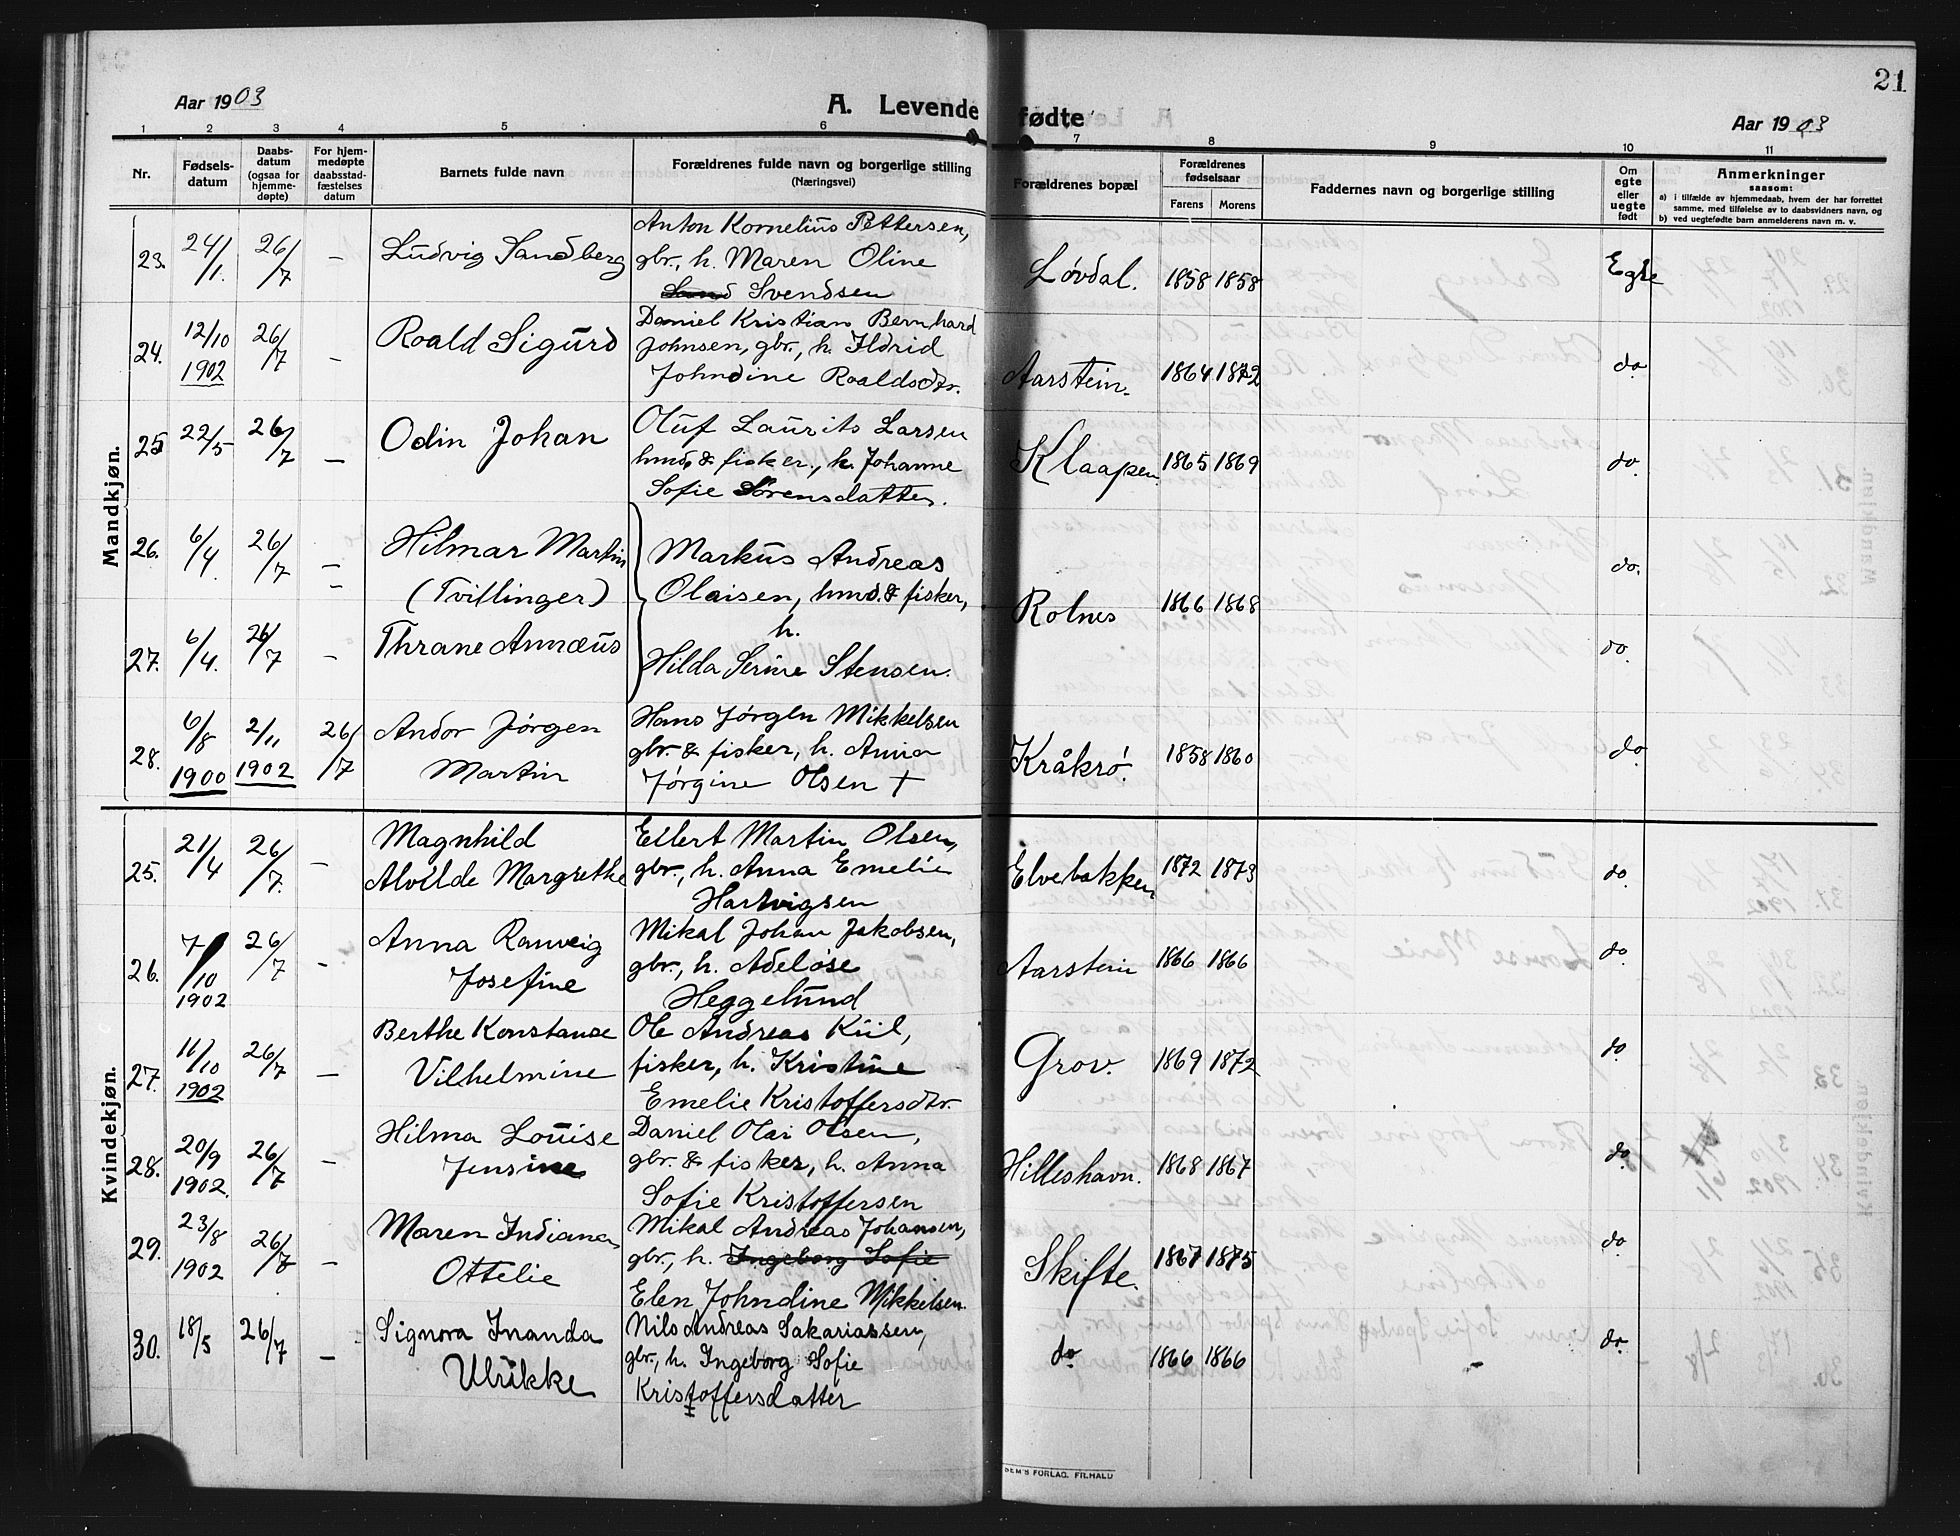 21
Aar 1903
A. Levende fødte
Aar 1903
1 2 3 4 5 6 7 8 9 10 11
Nr.
Fødsels-
datum
Daabs-
datum
(ogsaa for
hjemme-
døpte)
For hjem-
medøpte
daabsstad-
fæstelses
datum
Barnets fulde navn
Forældrenes fulde navn og borgerlige stilling
(Næringsvei)
Forældrenes bopæl
Forældrenes
fødselsaar
Farens Morens
Faddernes navn og borgerlige stilling
Om
egte
eller
uegte
født
Anmerkninger
saasom:
a) i tilfælde av hjemmedaab, hvem der har forrettet
samme, med tilføielse av to daabsvidners navn, og
b) ved uegtefødte barn anmelderens navn m. v.
Mandkjøn.
23. 24/1. 26/7 — Ludvig Sandberg
Anton Kornelius Pettersen,
gbr., h. Maren Oline
Sand Svendsen
Løvdal. 1858 1858 Egte
24. 12/10 1902 26/7 — Roald Sigurd
Daniel Kristian Bernhard
Johnsen, gbr., h. Ildrid
Johndine Roaldsdtr.
Aarstein. 1864 1872 do
25 22/5 26/7 — Odin Johan
Oluf Laurits Larsen
hmd. & fisker., h. Johanne
Sofie Sørensdatter.
Klaapen 1865 1869 do.
26. 6/4. 26/7 — Hilmar Martin
(Tvillinger)
Markus Andreas
Olaisen, hmd. & fisker,
h.
Hilda Serine Stensen.
Rolnes 1866 1868 do.
27. 6/4. 26/7 — Thrane Annæus
do.
28. 6/8 1900 2/11 1902 26/7 Andor Jørgen
Martin
Hans Jørgen Mikkelsen
gbr. & fisker, h. Anna
Jørgine Olsen †
Kråkrø. 1858 1860 do
Kvindekjøn.
25. 21/4 26/7. — Magnhild
Alvilde Margrethe
Eilert Martin Olsen,
gbr., h. Anna Emelie
Hartvigsen
Elvebakken 1872 1873 do.
26. 7/10 1902 26/7 — Anna Ranveig
Josefine
Mikal Johan Jakobsen,
gbr., h. Adeløse
Heggelund
Aarstein 1866 1866 do.
27. 11/10 1902 26/7 — Berthe Konstanse
Vilhelmine
Ole Andreas Kiil,
fisker, h. Kristine
Emelie Kristoffersdtr.
Grov. 1869 1872 do.
28. 20/9 1902. 26/7 — Hilma Louise
Jensine
Daniel Olai Olsen,
gbr. & fisker, h. Anna
Sofie Kristoffersen
Hilleshavn. 1868 1867 do.
29. 23/8 1902 26/7 — Maren Indiana
Ottelie
Mikal Andreas Johansen,
gbr., h. Ingeborg Sofie
Elen Johndine Mikkelsen.
Skifte. 1867 1875 do.
30. 18/5 26/7 — Signora Inanda
Ulrikke
Nils Andreas Sakariassen,
gbr., h. Ingeborg Sofie
Kristoffersdatter
do. 1866 1866 - do.
SEM'S FORLAG, FILHALD